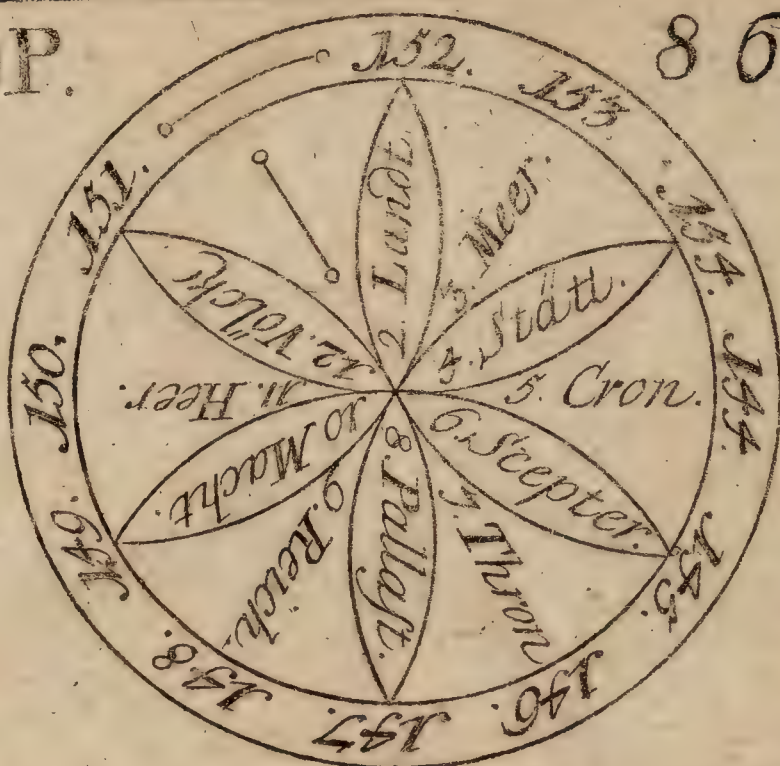 P.
86
152.
153.
154.
144.
145.
146.
147.
148.
149.
150.
151.
2. Landt.
3. Meer.
4. Stätt.
5. Cron.
6. Scepter.
7. Thron
8. Pallaſt.
9. Reich.
10 Macht.
11. Heer.
12. Völcke